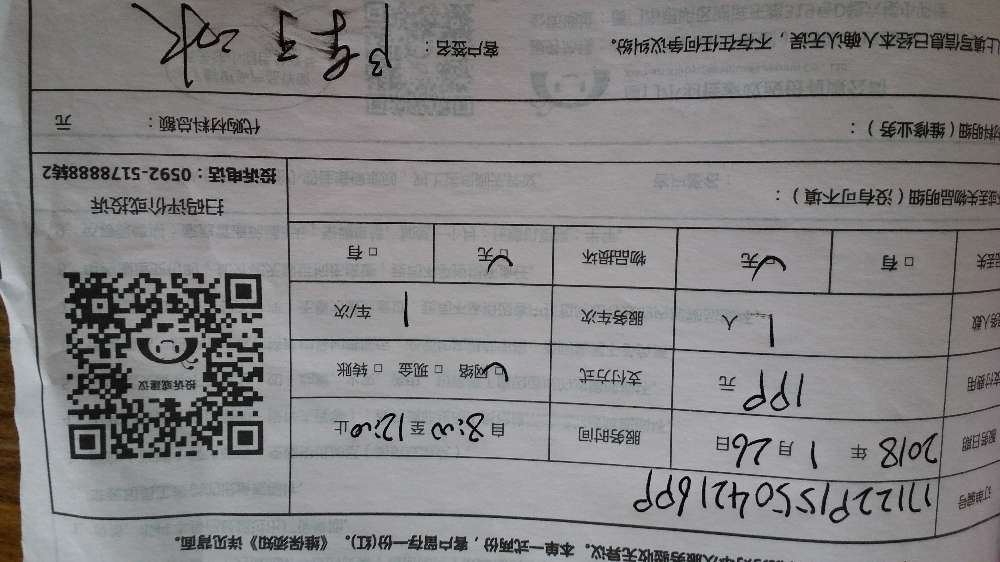 本次服务验收无异议。本单一式两份，客户留存一份(红)。《维保须知》详见背面。
订单编号
服务日期 2018年1月26日 服务时间 自8:00至12:00止
支付费用 199元 支付方式 网络 □现金 □转账
服务人数 1人 服务车次 1车/次
丢失 □有 □无 物品损坏 □无 □有
投诉或建议
丢失物品明细（没有可不填）：
扫码评价或投诉
投诉电话：0592-5178888转2
材料明细（维修业务）：
代购材料总额： 元
上填写信息已经本人确认无误，不存在任何争议纠纷。 客户签名：